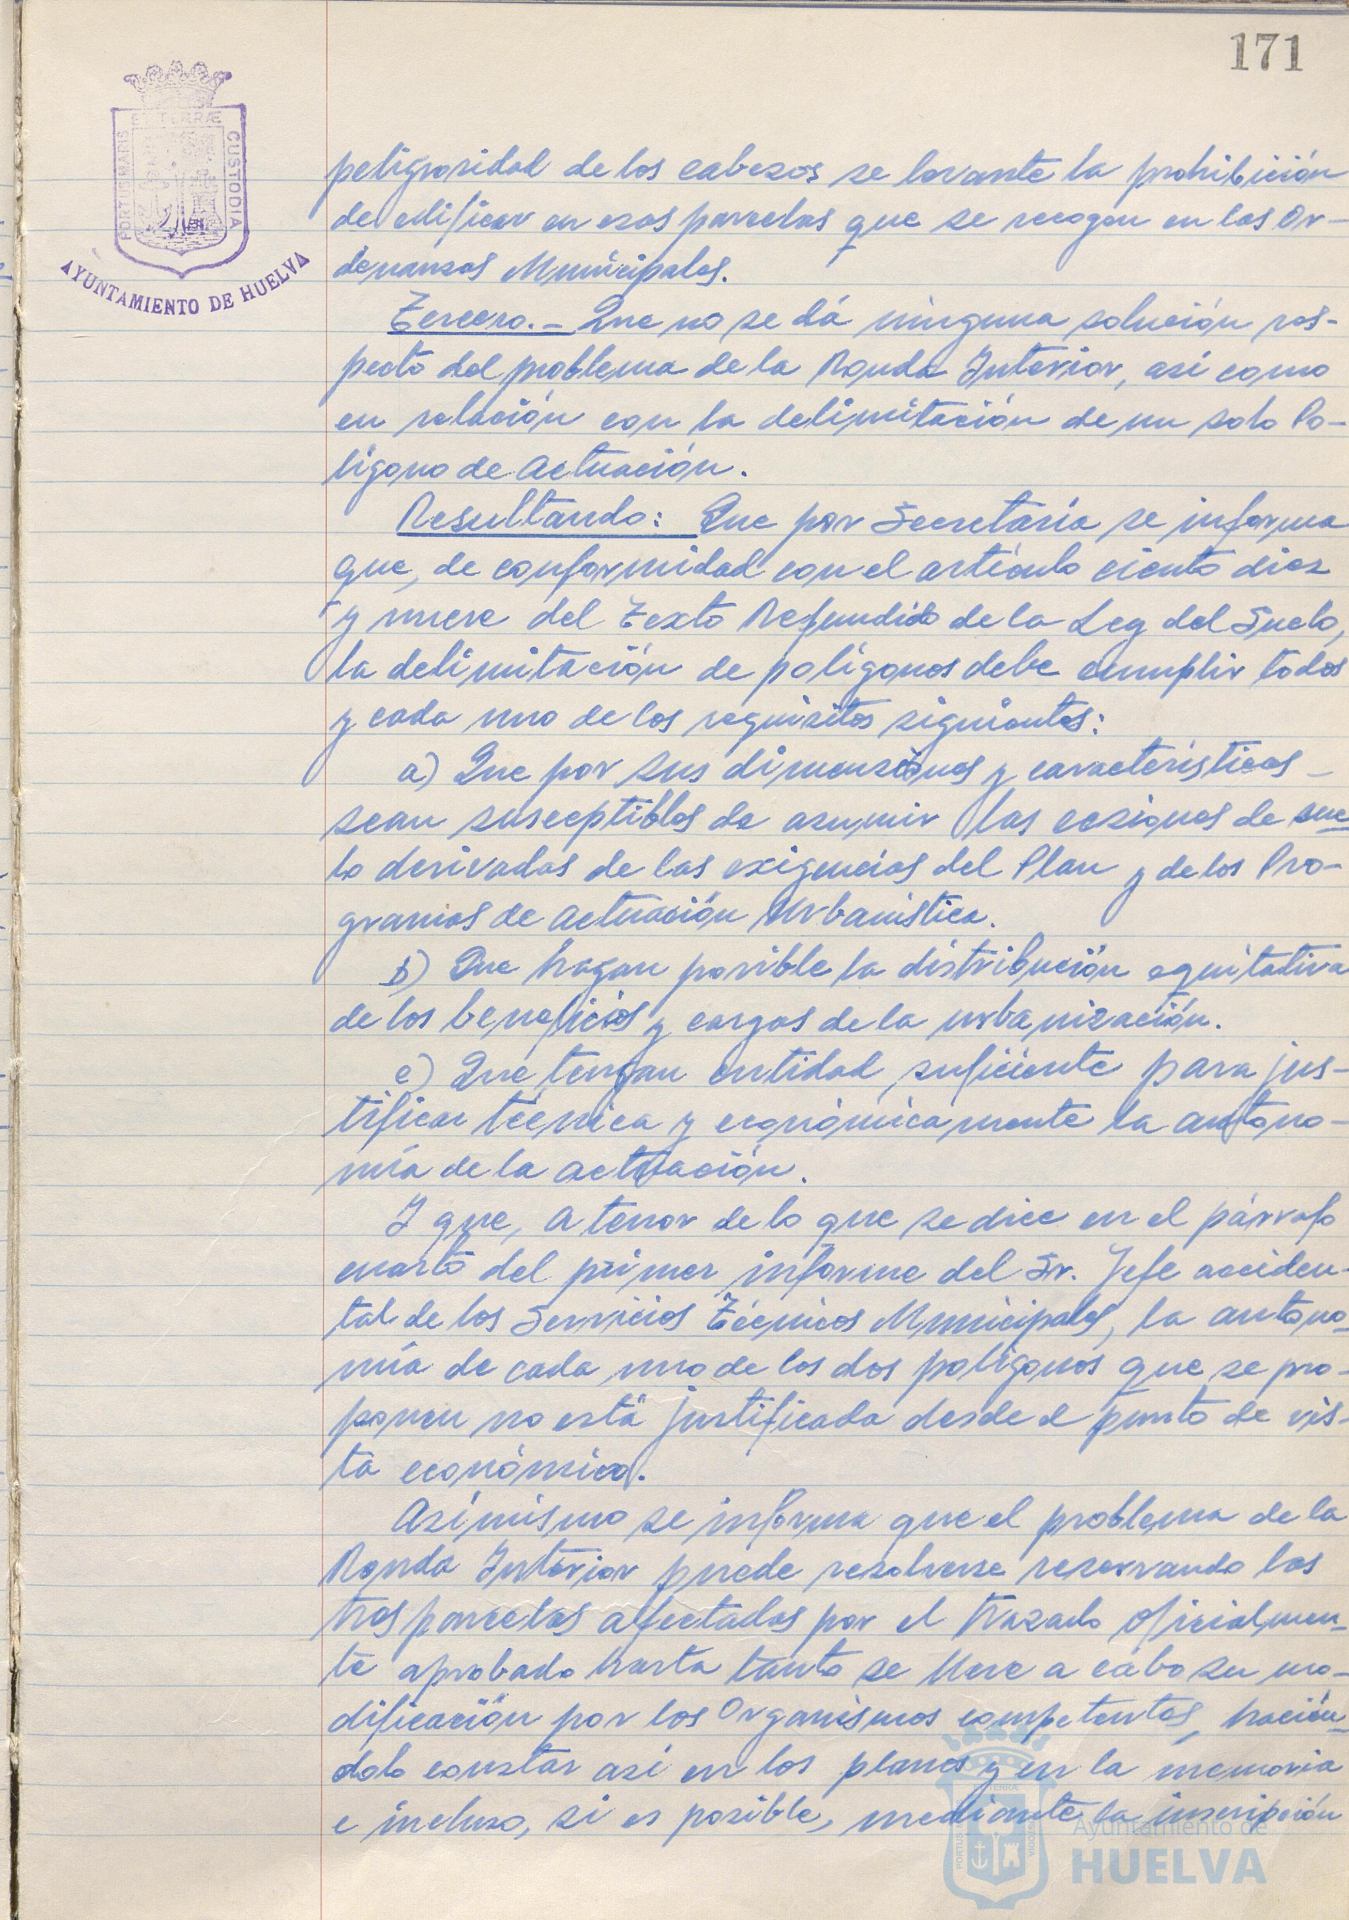 171
PORTUS MARIS
ET TERRÆ
CUSTODIA
AYUNTAMIENTO DE HUELVA
peligrosidad de los cabezos se levante la prohibición
de edificar en esas parcelas que se recogen en las Or-
denanzas Municipales.
Tercero.- Que no se dá ninguna solución res-
pecto del problema de la Ronda Interior, así como
en relación con la delimitación de un solo Po-
lígono de Actuación.
Resultando: Que por Secretaría se informa
que, de conformidad con el artículo ciento diez
y nueve del Texto Refundido de la Ley del Suelo,
la delimitación de polígonos debe cumplir todos
y cada uno de los requisitos siguientes:
a) Que por sus dimensiones y características -
sean susceptibles de asumir las cesiones de sue-
lo derivadas de las exigencias del Plan y de los Pro-
gramas de Actuación Urbanística.
b) Que hagan posible la distribución equitativa
de los beneficios y cargas de la urbanización.
c) Que tengan entidad suficiente para jus-
tificar técnica y económicamente la autono-
mía de la actuación.
Y que, a tenor de lo que se dice en el párrafo
cuarto del primer informe del Sr. Jefe acciden-
tal de los Servicios Técnicos Municipales, la autono-
mía de cada uno de los dos polígonos que se pro-
ponen no está justificada desde el punto de vis-
ta económico.
Asimismo se informa que el problema de la
Ronda Interior puede resolverse reservando las
tres parcelas afectadas por el trazado oficialmen-
te aprobado hasta tanto se lleve a cabo su mo-
dificación por los Organismos competentes, hacién-
dolo constar así en los planos y en la memoria
e incluso, si es posible, mediante la inscripción
Ayuntamiento de
HUELVA